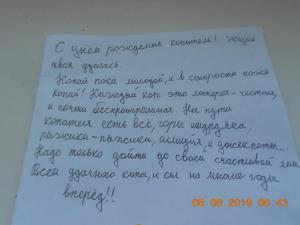 С днём рождения копатель! Жизнь
твоя удалась.
Копай пока молодой, и в старости тоже
копай! Каждый коп это лотерея - честная,
и почти беспроигрышная. На пути
копателя есть всё, горы шидряка,
рыжики - пыжики, и
Надо только дойти до своей счастливой ямы.
Всем удачного копа, и сил на многие годы
вперёд!!
08.08.2019 06:43